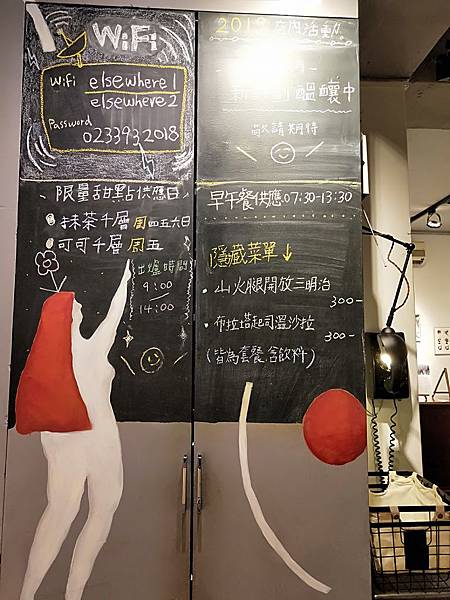 WiFi
WiFi elsewhere1
elsewhere2
Password
0233932018
限量甜點供應日
抹茶千層 周四五六日
可可千層 周五
出爐時間
9:00
14:00
2019 店內活動
醞釀中
敬請期待
早午餐供應07:30-13:30
隱藏菜單↓
• 山火腿開放三明治
300-
• 布拉塔起司溫沙拉
300-
(皆為套餐,含飲料)